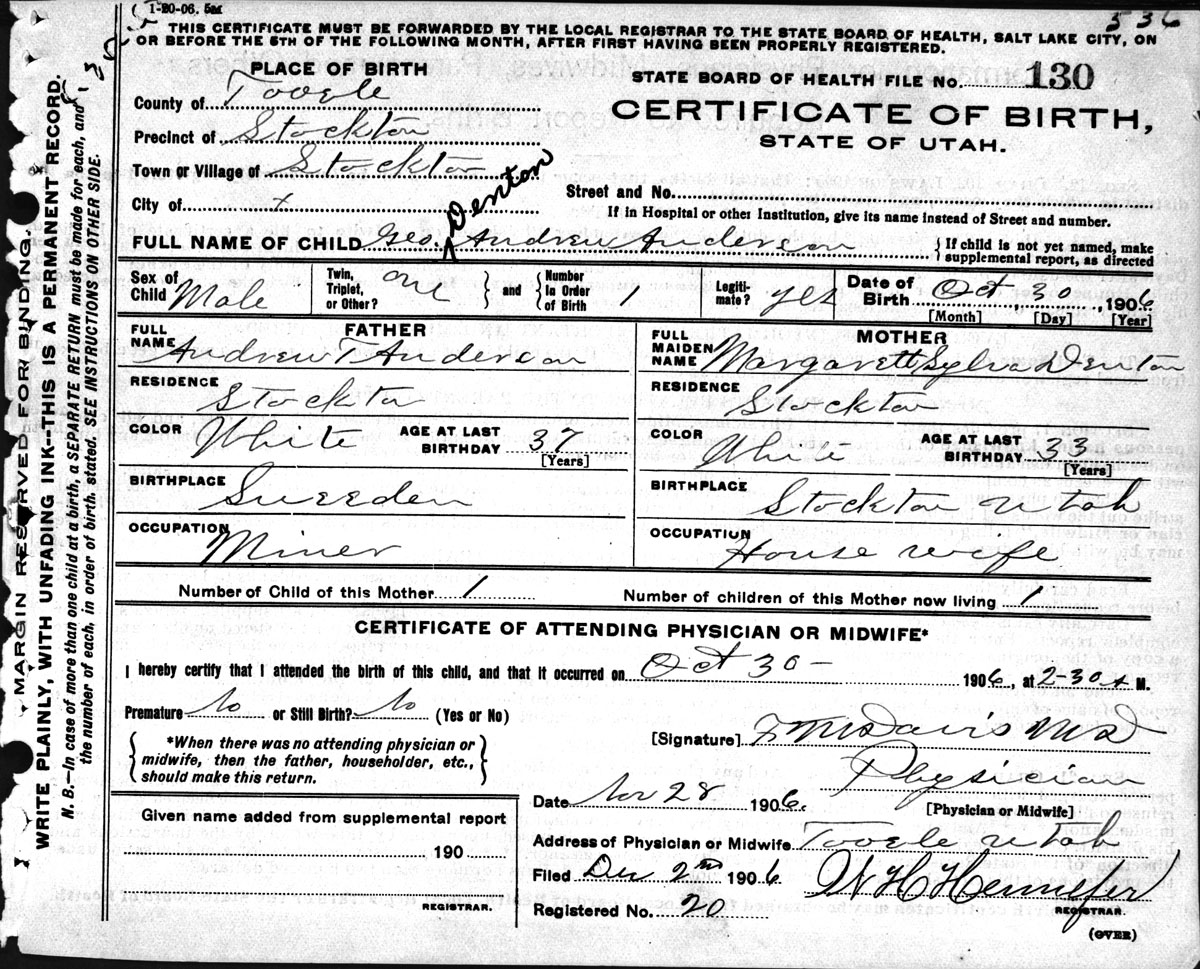 1-20-06. 5M
536
THIS CERTIFICATE MUST BE FORWARDED BY THE LOCAL REGISTRAR TO THE STATE BOARD OF HEALTH, SALT LAKE CITY, ON
OR BEFORE THE 5TH OF THE FOLLOWING MONTH, AFTER FIRST HAVING BEEN PROPERLY REGISTERED.
PLACE OF BIRTH
STATE BOARD OF HEALTH FILE No. 130
County of Tooele
CERTIFICATE OF BIRTH,
Precinct of Stockton
STATE OF UTAH.
Town or Village of Stockton
Street and No.
City of x
If in Hospital or other Institution, give its name instead of Street and number.
Denton
FULL NAME OF CHILD Geo. ^ Andrew Anderson
{ If child is not yet named, make
supplemental report, as directed
Sex of Child Male
Twin, Triplet, or Other? one } and { Number in Order of Birth 1
Legitimate? yes
Date of Birth Oct 30, 1906
[Month] [Day] [Year]
FATHER
FULL NAME Andrew T Anderson
RESIDENCE Stockton
COLOR White AGE AT LAST BIRTHDAY 37
[Years]
BIRTHPLACE Sweeden
OCCUPATION Miner
MOTHER
FULL MAIDEN NAME Margarett Sylva Denton
RESIDENCE Stockton
COLOR White AGE AT LAST BIRTHDAY 33
[Years]
BIRTHPLACE Stockton Utah
OCCUPATION House wife
Number of Child of this Mother 1 Number of children of this Mother now living 1
CERTIFICATE OF ATTENDING PHYSICIAN OR MIDWIFE*
I hereby certify that I attended the birth of this child, and that it occurred on Oct 30 - 1906, at 2-30 A M.
Premature No or Still Birth? No (Yes or No)
{ *When there was no attending physician or
midwife, then the father, householder, etc.,
should make this return. }
[Signature] F M Davis M D
Physician
[Physician or Midwife]
Date Nov 28 1906.
Given name added from supplemental report
190
REGISTRAR.
Address of Physician or Midwife Tooele Utah
Filed Dec 2nd 1906 W H Hennefer
REGISTRAR.
Registered No. 20
(OVER)
MARGIN RESERVED FOR BINDING.
WRITE PLAINLY, WITH UNFADING INK--THIS IS A PERMANENT RECORD.
N. B.—In case of more than one child at a birth, a SEPARATE RETURN must be made for each, and
the number of each, in order of birth, stated. SEE INSTRUCTIONS ON OTHER SIDE.